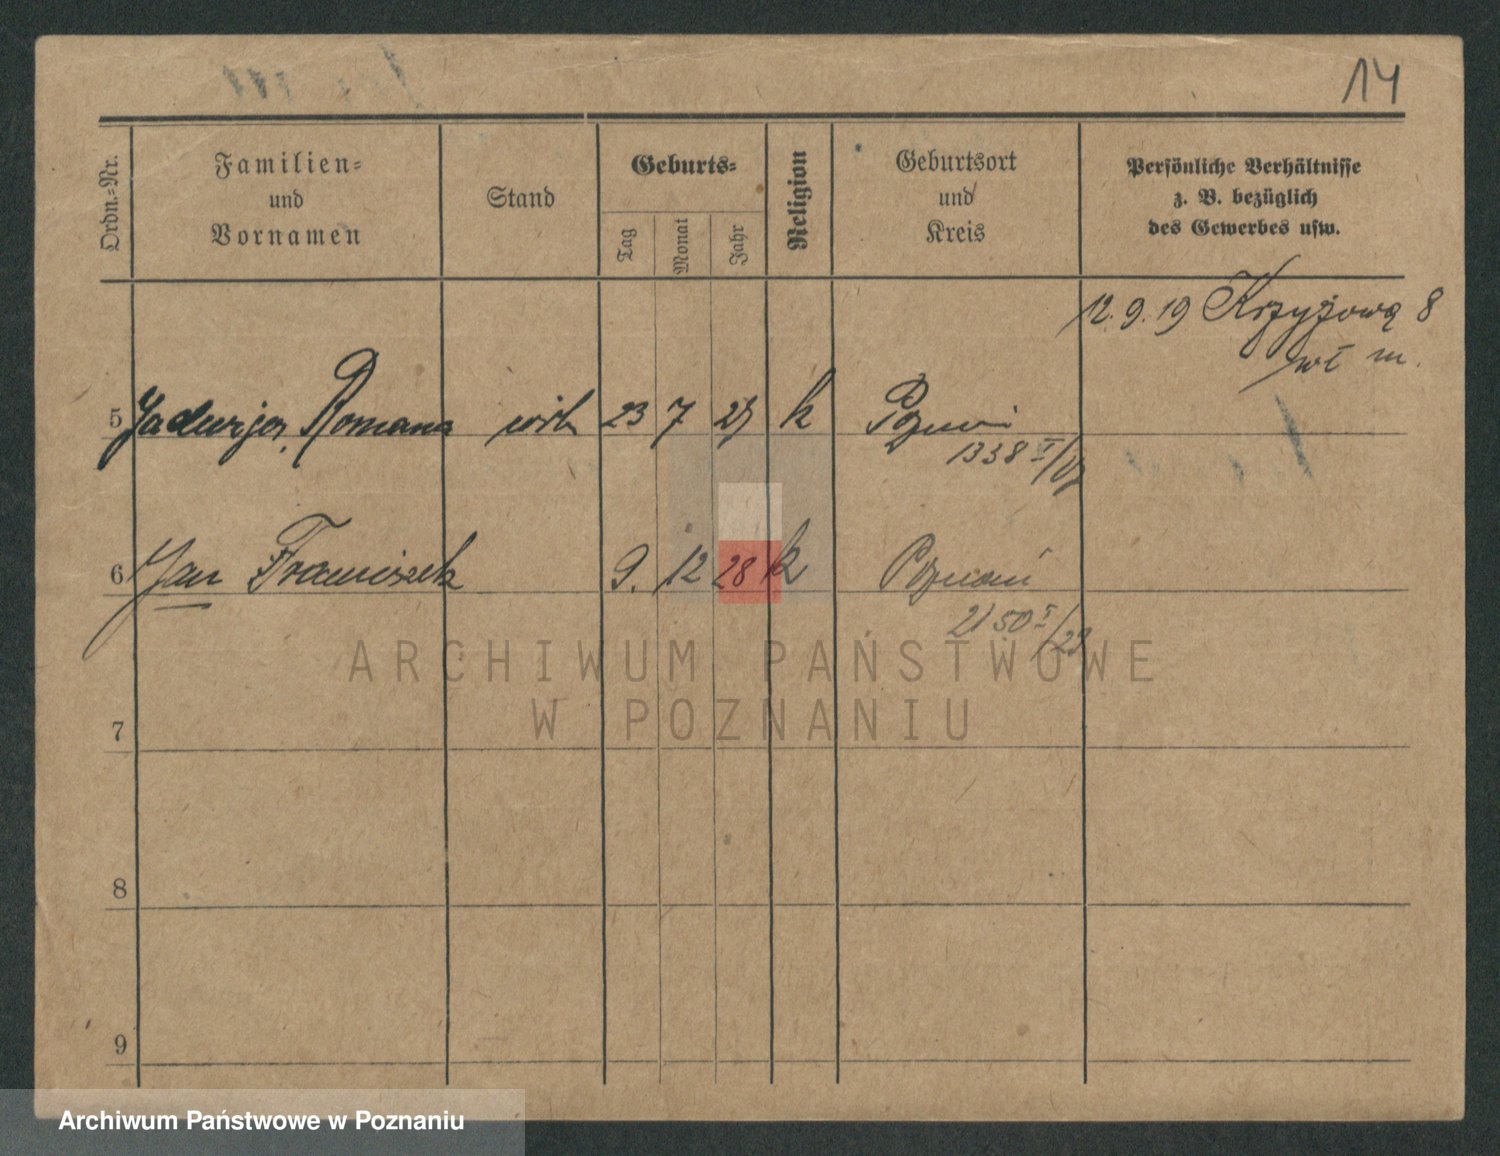 14
Ordn.-Nr.
Familien-
und
Vornamen
Stand
Geburts-
Tag
Monat
Jahr
Religion
Geburtsort
und
Kreis
Persönliche Verhältnisse
z. B. bezüglich
des Gewerbes usw.
12.9.19 Krzyżową 8
wł m.
5 Jadwiga, Romana 23 7 k
1338
6 Jan Franciszek 9. 12 28 k Poznań
2150 I/29
7
8
9
ARCHIWUM PAŃSTWOWE
W POZNANIU
Archiwum Państwowe w Poznaniu